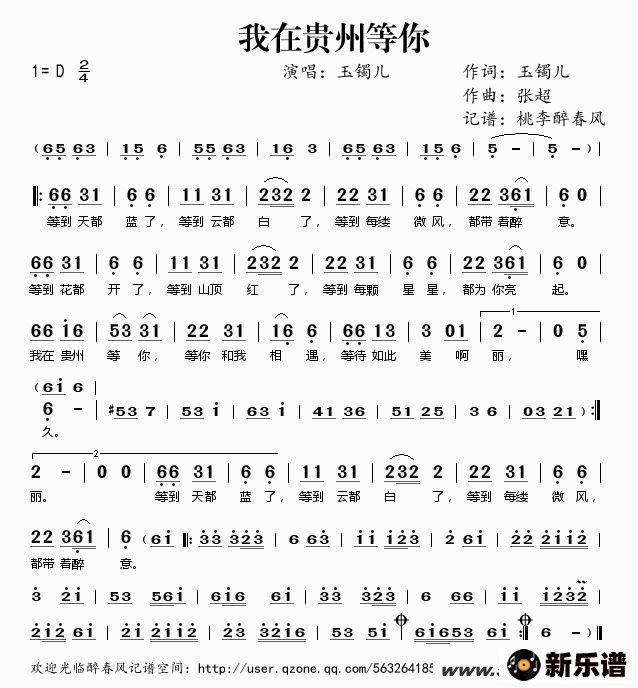 我在贵州等你
1= D 2/4 演唱: 玉镯儿 作词: 玉镯儿
作曲: 张超
记谱: 桃李醉春风
( 65 63 | 15 6 | 55 63 | 16 3 | 65 63 | 15 6 | 5 - | 5 - ) |
‖: 66 31 | 6 6 | 11 31 | 232 2 | 22 31 | 6 6 | 22 361 | 6 0 |
等到 天都 蓝 了, 等到 云都 白 了, 等到 每缕 微 风, 都带 着醉 意。
66 31 | 6 6 | 11 31 | 232 2 | 22 31 | 6 6 | 22 361 | 6 0 |
等到 花都 开 了, 等到 山顶 红 了, 等到 每颗 星 星, 都为 你亮 起。
1
66 16 | 53 31 | 22 31 | 16 6 | 66 13 | 3 01 | 2 - | 0 5 |
我在 贵州 等 你, 等你 和我 相 遇, 等待 如此 美 啊 丽, 嘿
( 6i 6 |
6 - | #53 7 | 53 i | 63 i | 41 36 | 51 25 | 3 6 | 03 21 ) :‖
久。
2
2 - | 0 0 | 66 31 | 6 6 | 11 31 | 232 2 | 22 31 | 6 6 |
丽。 等到 天都 蓝 了, 等到 云都 白 了, 等到 每缕 微 风,
22 361 | 6 ( 6i ‖: 33 323 | 6 63 | ii i23 | 2 6i | 22 2ii2 |
都带 着醉 意。
3 2i | 53 56i | 6i6 6i | 33 323 | 2 66 | ii i232 |
2i2 6i | 22 i6i6 | 53 5i | 6i653 6i |
欢迎光临醉春风记谱空间: http://user.qzone.qq.com/563264185
新乐谱